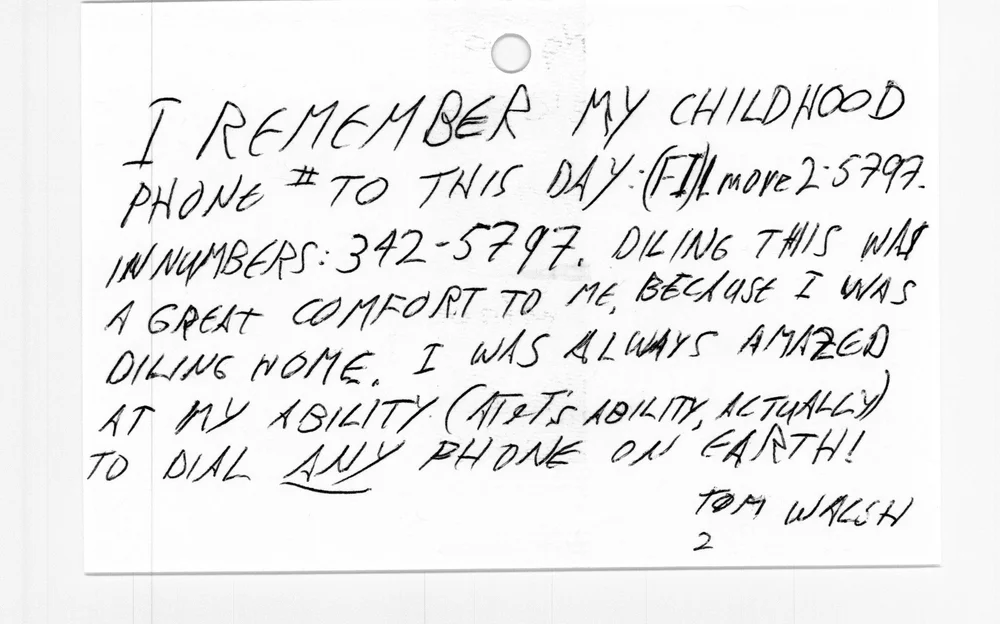 I REMEMBER MY CHILDHOOD
PHONE # TO THIS DAY: (FI)Lmore 2-5797.
IN NUMBERS: 342-5797. DILING THIS WAS
A GREAT COMFORT TO ME, BECAUSE I WAS
DILING HOME. I WAS ALWAYS AMAZED
AT MY ABILITY (AT&T'S ABILITY, ACTUALLY)
TO DIAL ANY PHONE ON EARTH!
TOM WALSH
2